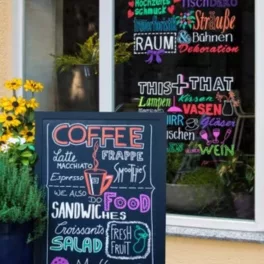 Hochzeits
schmuck
Tischdeko
Sträuße
RAUM
& Bühnen
Dekoration
THIS + THAT
Lampen
Kissen
VASEN
Gläser
WEIN
COFFEE
Latte
MACCHIATO
FRAPPE
Espresso
Smoothies
WE ALSO DO FOOD
SANDWICHES
Croissants
SALAD
FRESH
FRUIT